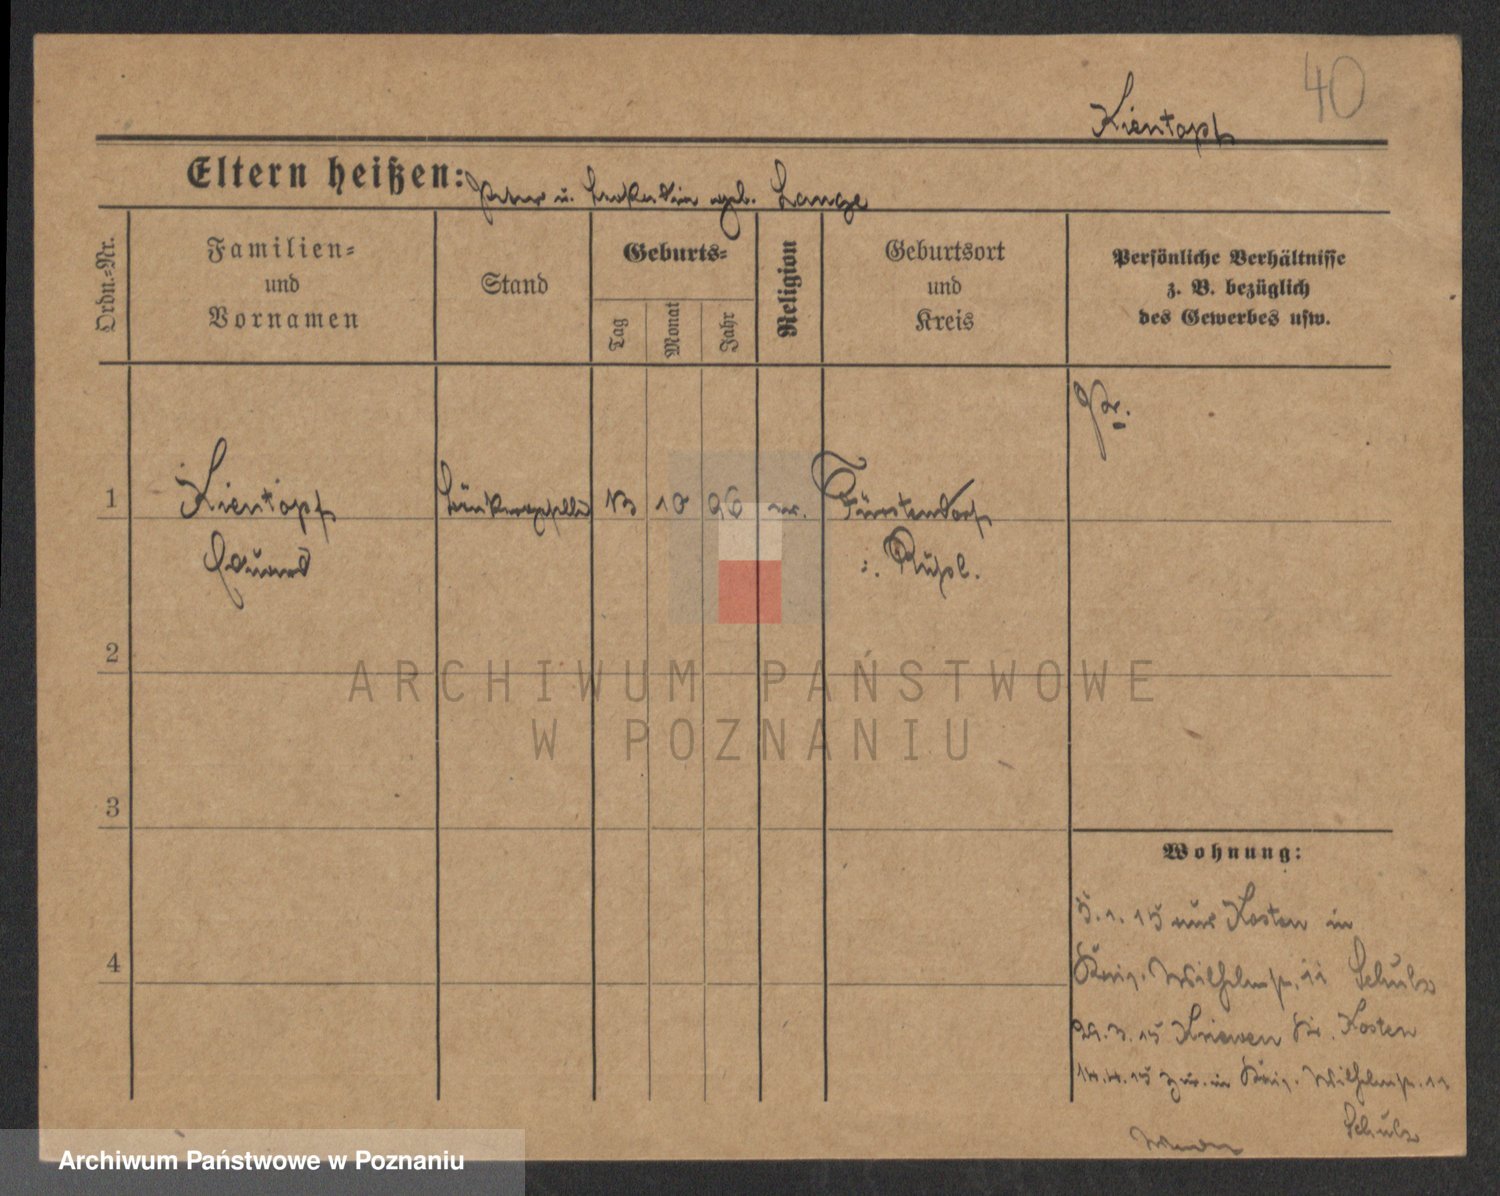 40
Kientopf
Eltern heißen: Peter u. geb. Lange
Ordn.-Nr.
Familien-
und
Vornamen
Stand
Geburts-
Tag
Monat
Jahr
Religion
Geburtsort
und
Kreis
Persönliche Verhältnisse
z. B. bezüglich
des Gewerbes usw.
Pr.
1 Kientopf 13 10 96 ev. Fürstendorf
Eduard i. Rußl.
2
3
4
Wohnung:
5. 1. 15 aus Kosten in
Wilhelmstr. 11 Schulz
29. 3. 15 Kriewen Kr. Kosten
14. 4. 15 zur. in Wilhelmstr. 11
Schulz
ARCHIWUM PAŃSTWOWE
W POZNANIU
Archiwum Państwowe w Poznaniu